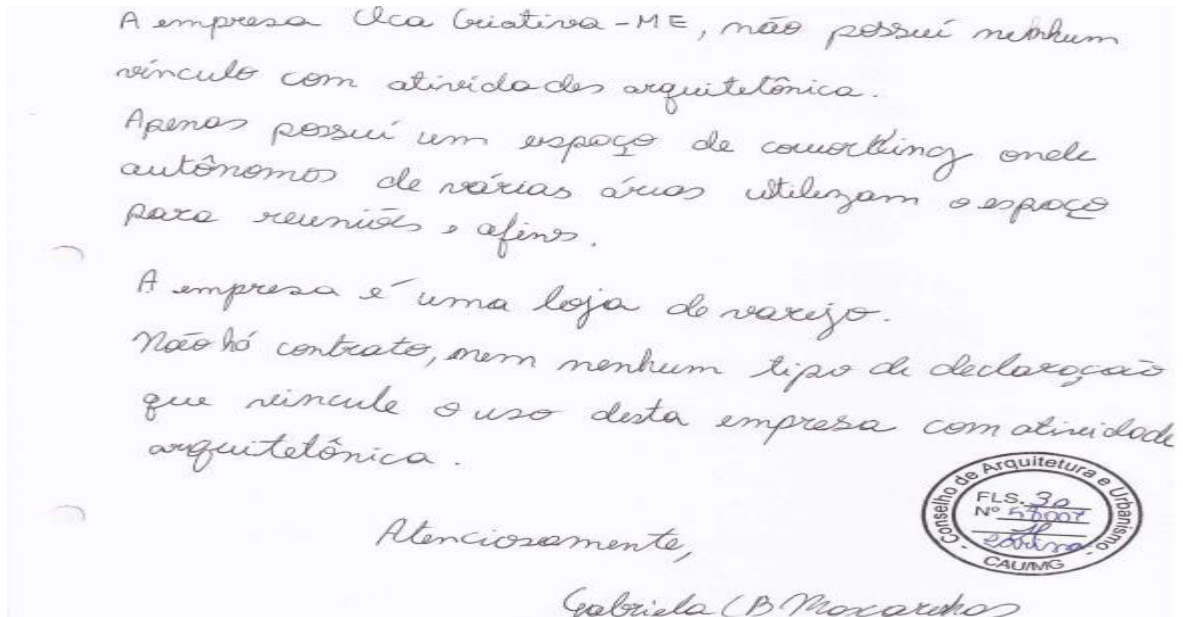 A empresa Uca Criativa - ME, não possuí nenhum
vínculo com atividades arquitetônica.
Apenas possuí um espaço de coworking onde
autônomos de várias áreas utilizam o espaço
para reuniões e afins.
A empresa é uma loja de varejo.
Não há contrato, nem nenhum tipo de declaração
que vincule o uso desta empresa com atividade
arquitetônica.
Conselho de Arquitetura e Urbanismo
FLS. 30
Nº
- CAU/MG -
Atenciosamente,
Gabriela CB